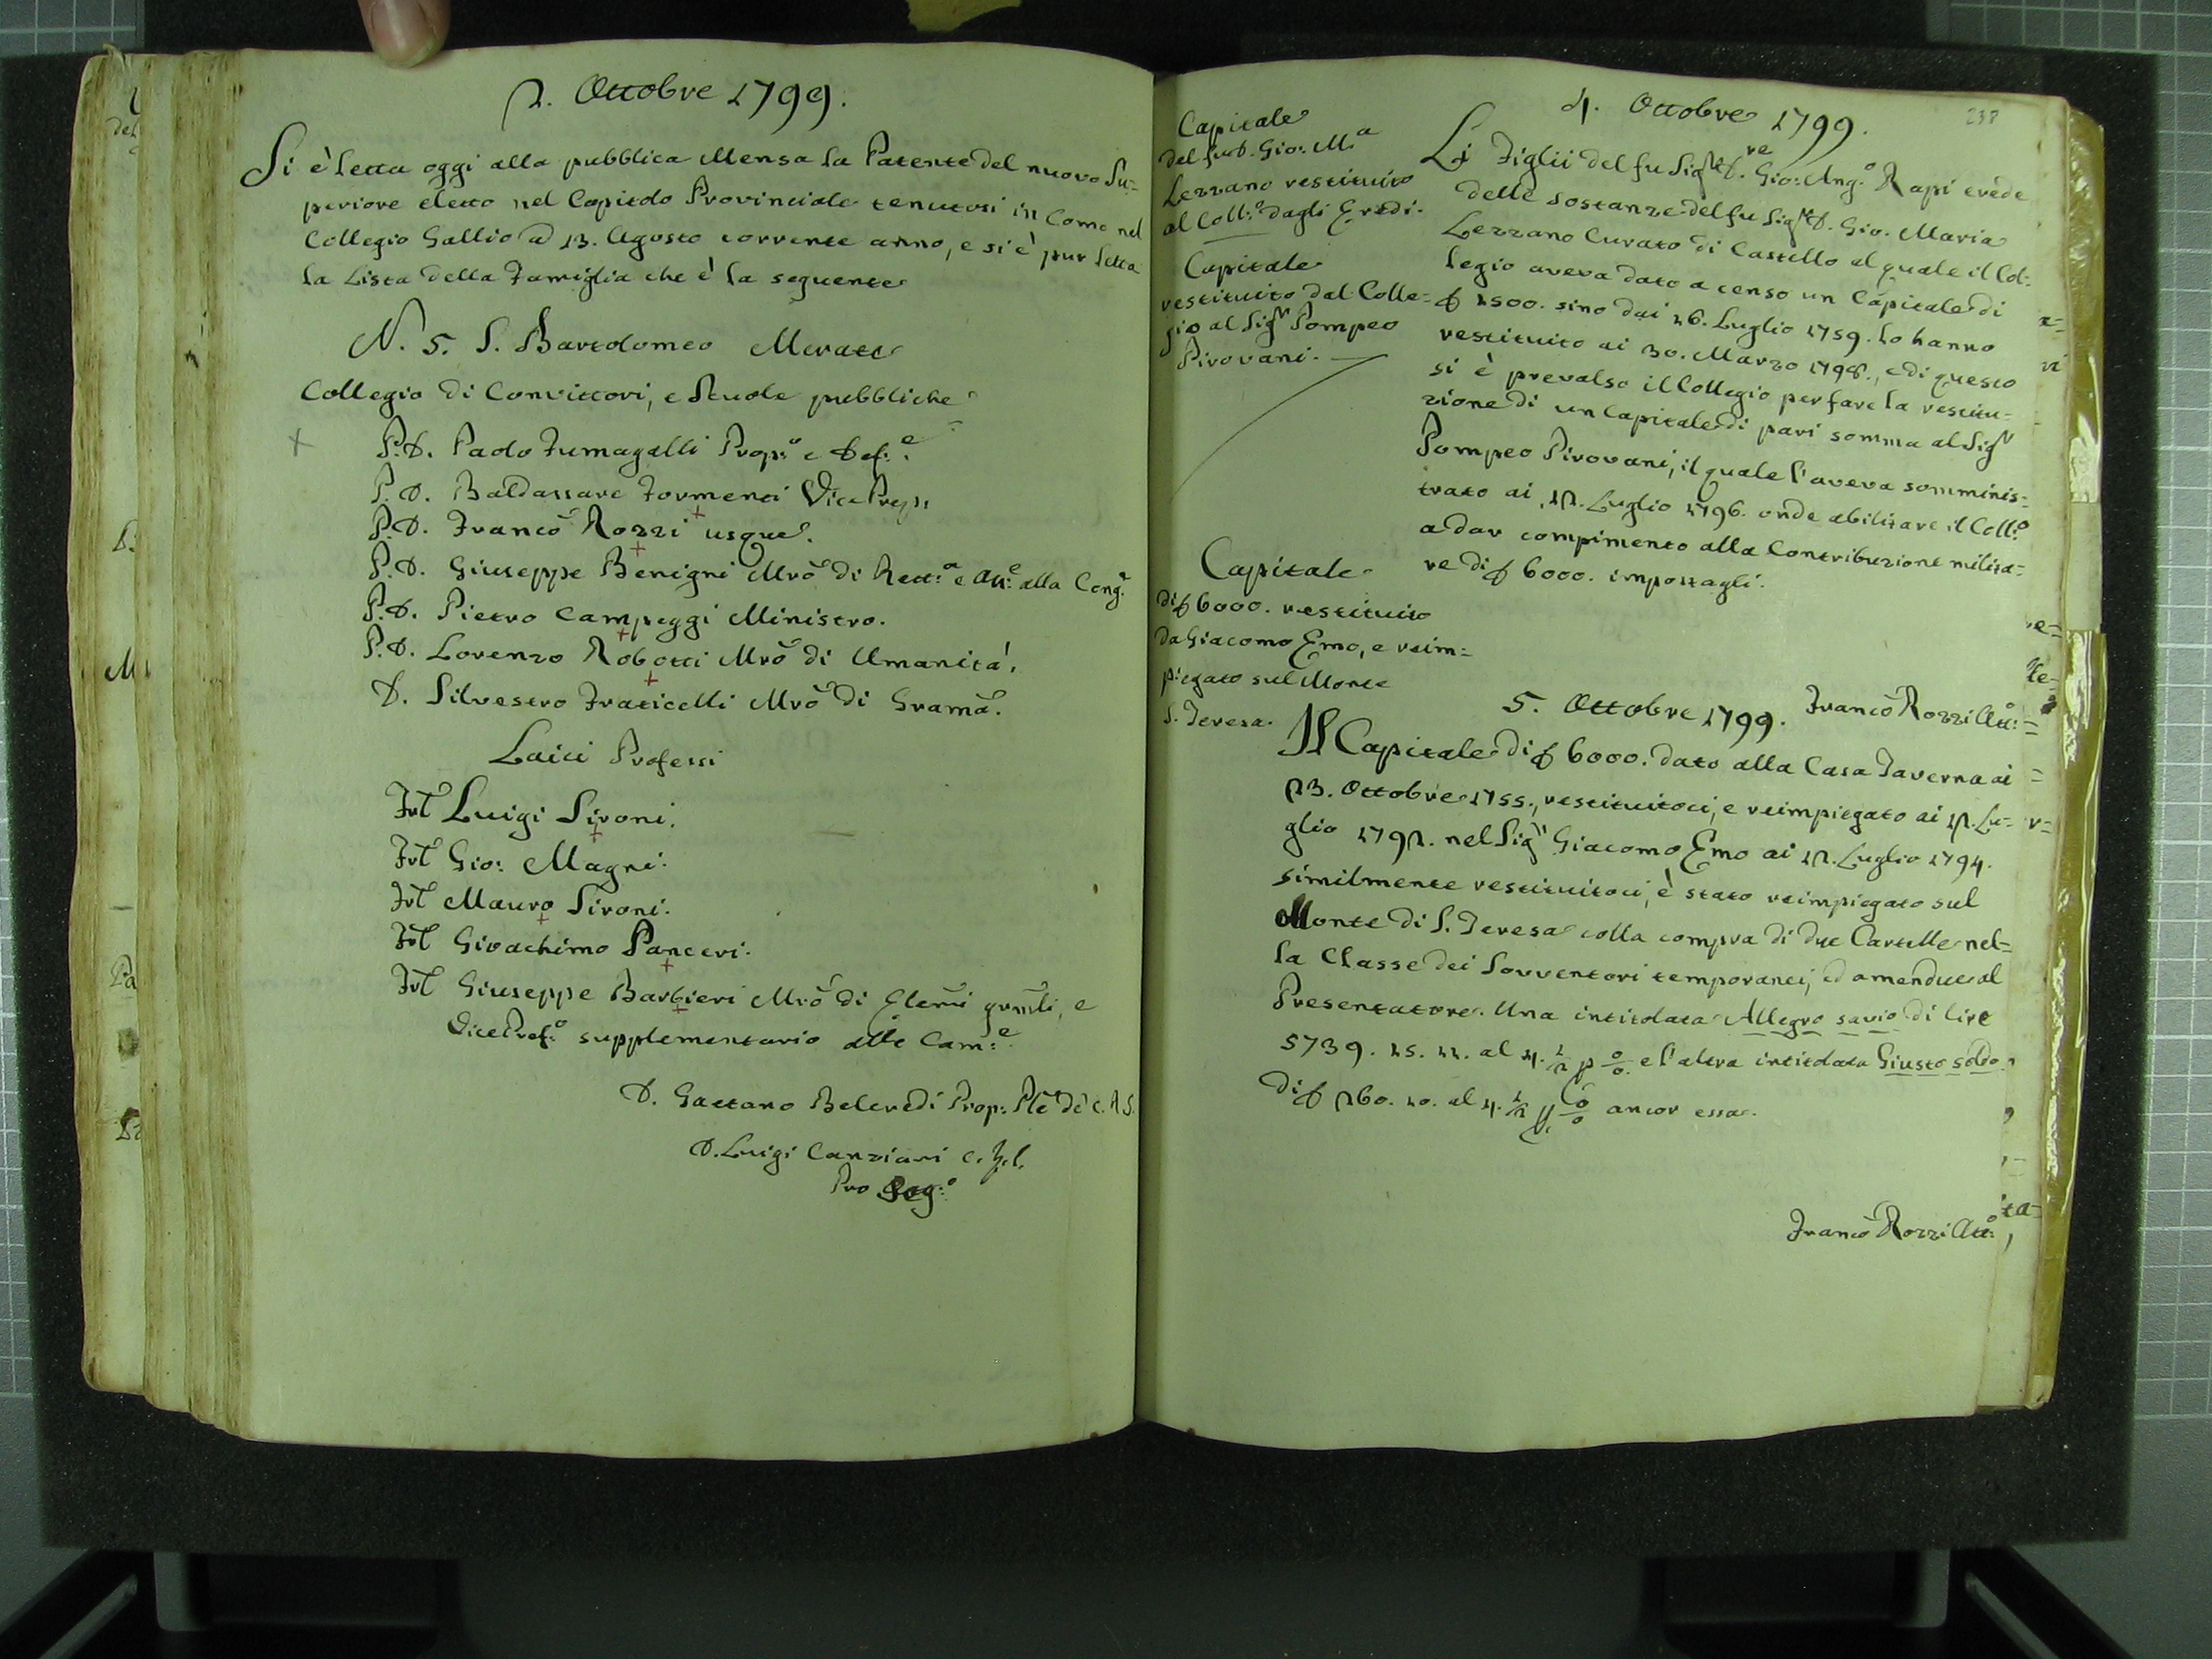 2. Ottobre 1799.
Si è letta oggi alla pubblica Mensa la Patente del nuovo Su=
periore eletto nel Capitolo Provinciale tenutosi in Como nel
Collegio Gallio a 13. Agosto corrente anno, e si è pur letta
la Lista della Famiglia che è la seguente
N. 5. S. Bartolomeo Merate
Collegio di Convittori, e Scuole pubbliche
P.D. Paolo Fumagalli Prop.º e Def.e
P.D. Baldassare Formenti Vice Prep.
P.D. Franco Rozzi usque.
P.D. Giuseppe Benigni Mrõ di Rett.a e Att.º alla Cong.e
P.D. Pietro Campeggi Ministro.
P.D. Lorenzo Robotti Mrõ di Umanità.
D. Silvestro Fraticelli Mrõ di Gramã.
Laici Professi
Frl Luigi Sironi.
Frl Gio: Magni.
Frl Mauro Sironi.
Frl Gioachimo Panceri.
Frl Giuseppe Barbieri Mrõ di Elemi grãmli, e
Vice Pref.º supplementario alle Cam.e
D. Gaetano Belcredi Prop. Ple de C. R. S.
D. Luigi Canziani C. R. S.
Pro Seg.º
238
4. Ottobre 1799.
Capitale
del fu D. Gio: M.a
Lezzano restituito
al Coll.º dagli Eredi.
Capitale
restituito dal Colle=
gio al Sigr Pompeo
Pirovani.
Li Figlii del fu Sigre D. Gio: Ang.º Rapi erede
delle sostanze del fu Sigr D. Gio. Maria
Lezzano Curato di Castello al quale il Col:
legio aveva dato a censo un Capitale di
£ 1500. sino dai 26. Luglio 1759. lo hanno
restituito ai 30. Marzo 1798., e di questo
si è prevalso il Collegio per fare la restitu=
zione di un Capitale di pari somma al Sigr
Pompeo Pirovani, il quale l'aveva somminis=
trato ai 12. Luglio 1796. onde abilitare il Coll.º
a dar compimento alla Contribuzione milita=
re di £ 6000. impostagli.
Franco Rozzi Att.º
Capitale
di £ 6000. restituito
da Giacomo Emo, e reim=
piegato sul Monte
S. Teresa.
5. Ottobre 1799.
Il Capitale di £ 6000. dato alla Casa Taverna ai
23. Ottobre 1755., restituitoci, e reimpiegato ai 12. Lu=
glio 1792. nel Sigr Giacomo Emo ai 12. Luglio 1794.
similmente restituitoci, è stato reimpiegato sul
Monte di S. Teresa colla compra di due Cartelle nel=
la Classe dei Sovventori temporanei, ed amendue al
Presentatore. Una intitolata Allegro savio di lire
5739. 15. 11. al 4. 1/2 p o/o e l'altra intitolata Giusto soldo
di £ 260. 10. al 4. 1/2 p. o/o ancor essa.
Franco Rozzi Att.º